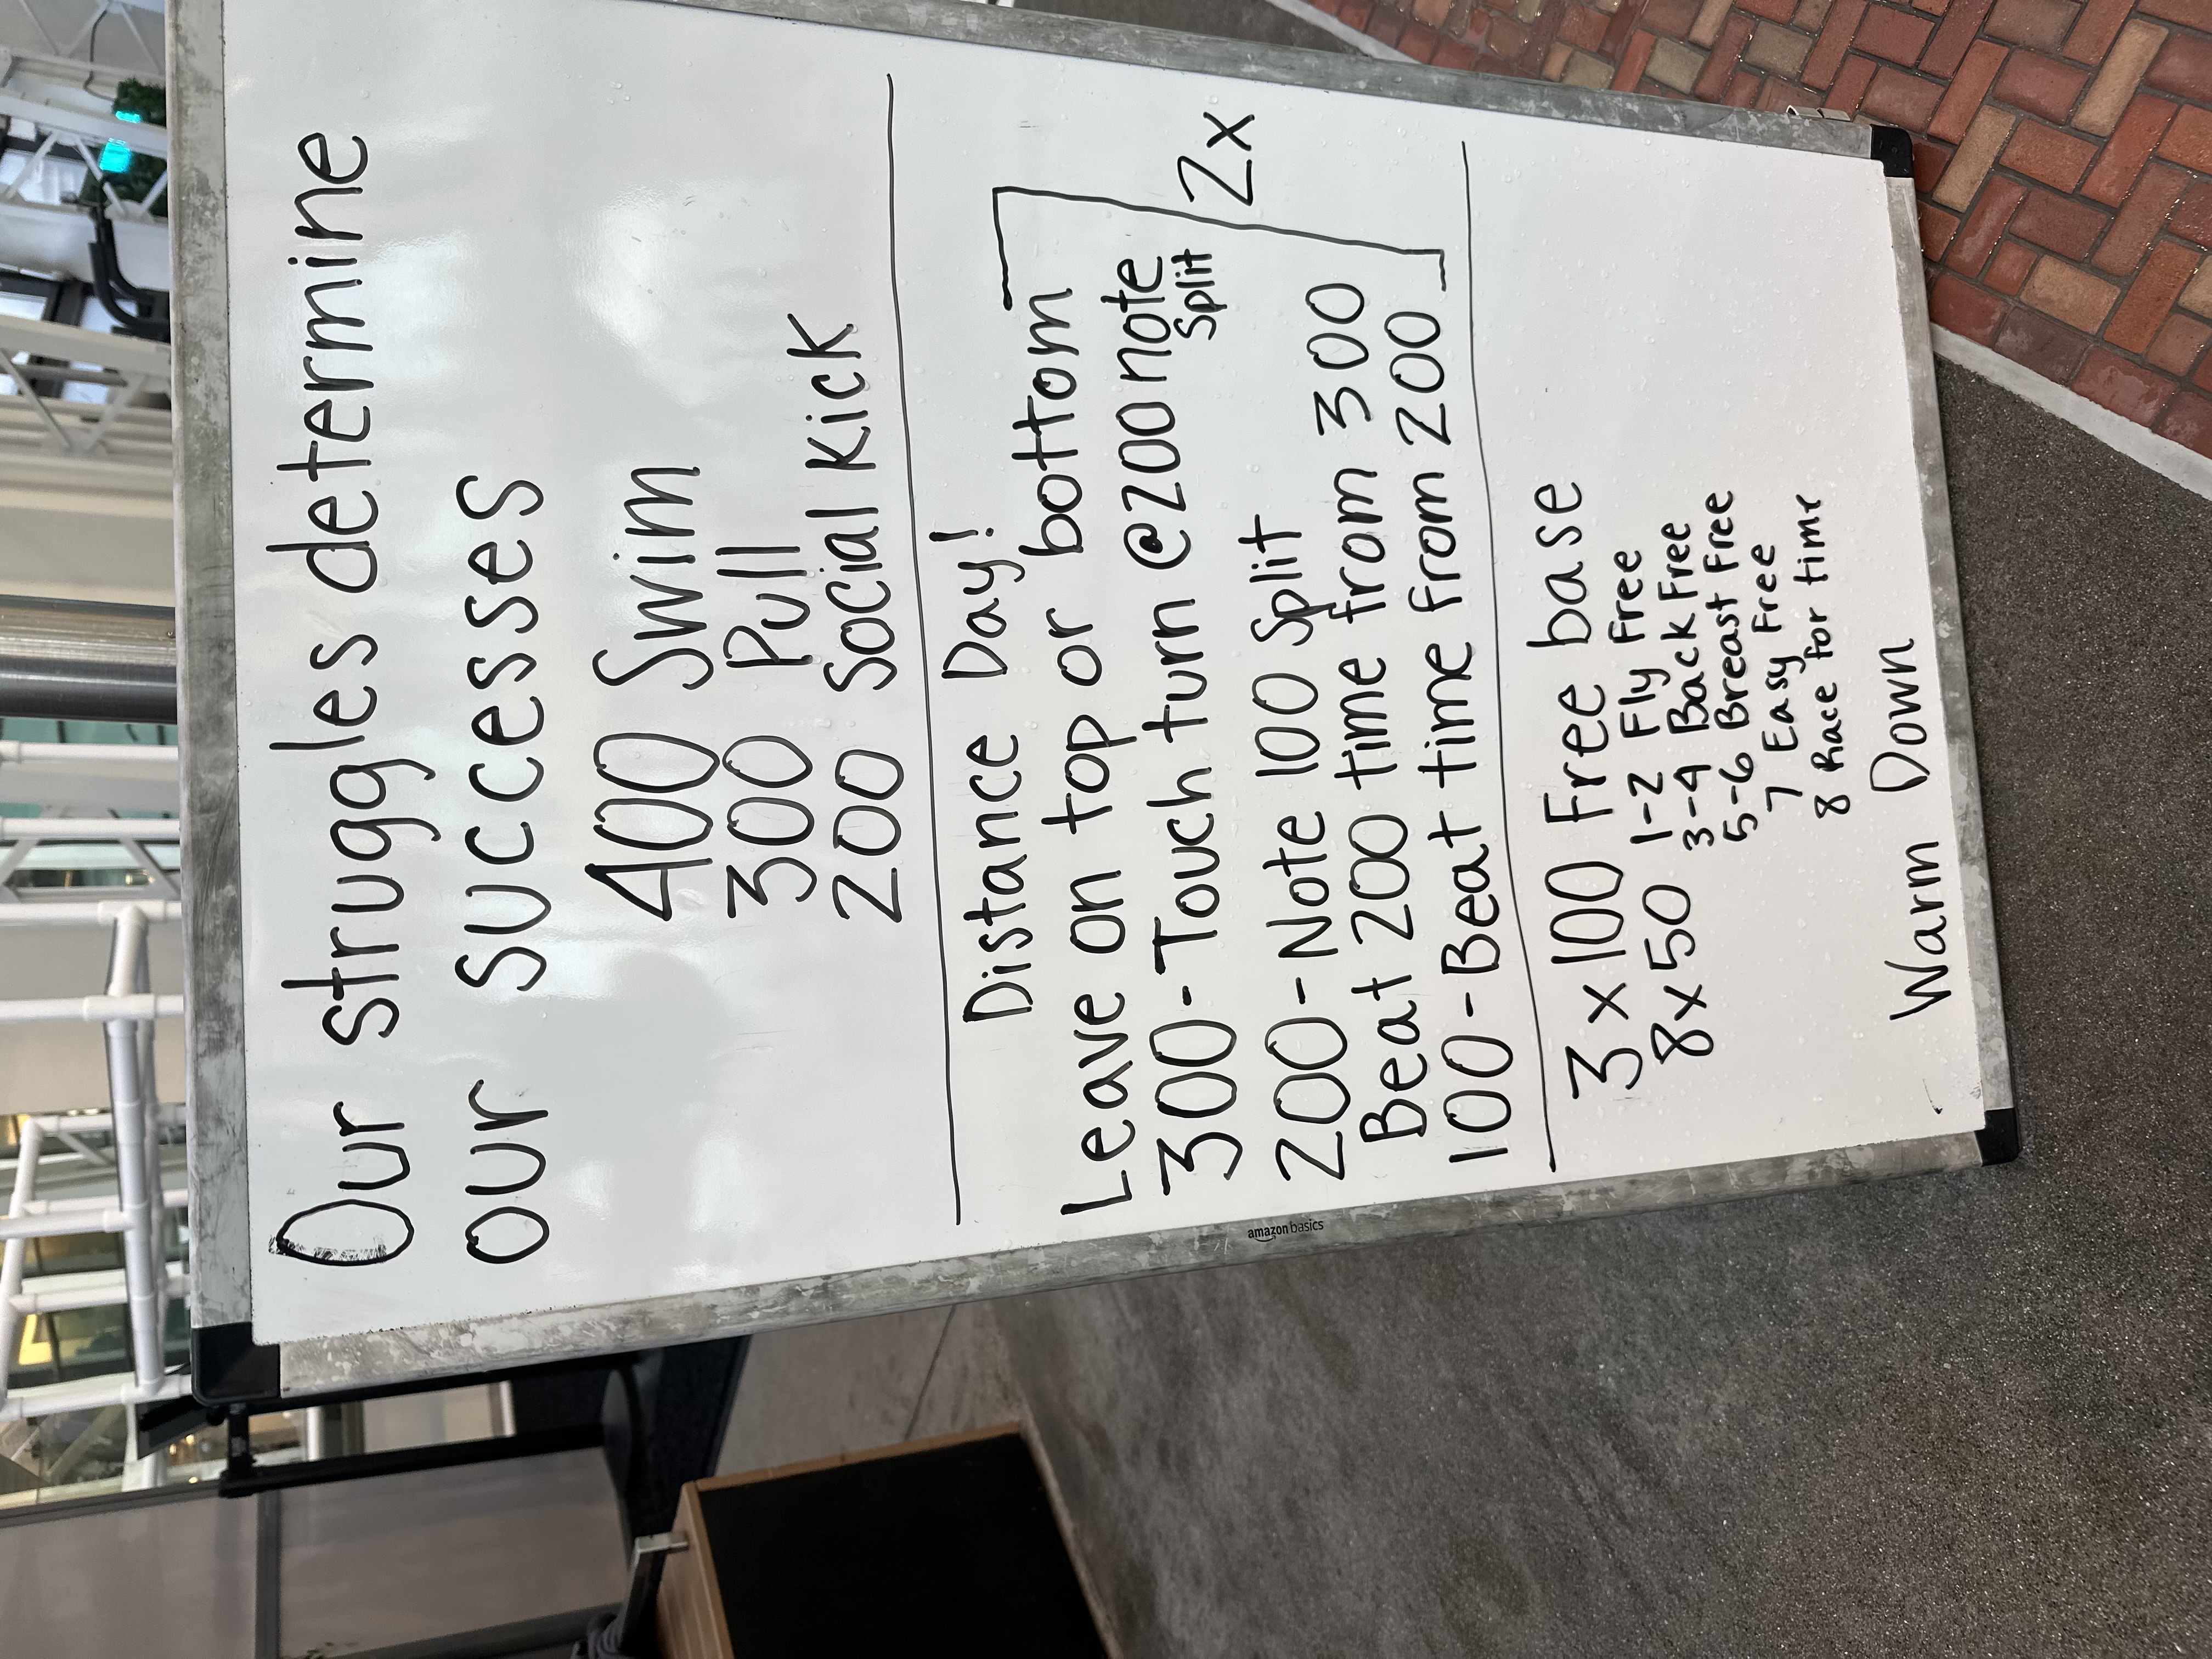 Our struggles determine
our successes
400 Swim
300 Pull
200 Social Kick
Distance Day!
Leave on top or bottom
300-Touch turn @200 note
Split
2x
200-Note 100 Split
Beat 200 time from 300
100-Beat time from 200
3x100 Free base
8x50 1-2 Fly Free
3-4 Back Free
5-6 Breast Free
7 Easy Free
8 Race for time
Warm Down
amazon basics